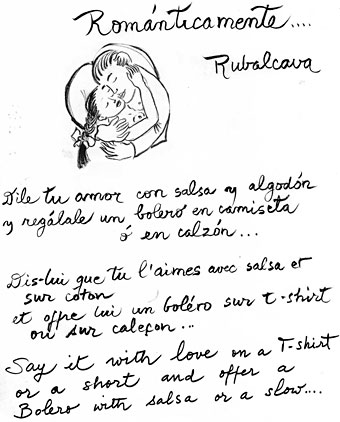 Románticamente....
Rubalcava
Dile tu amor con salsa y algodón
y regálale un bolero en camiseta
ó en calzón...
Dis-lui que tu l'aimes avec salsa et
sur coton
et offre lui un boléro sur t-shirt
ou sur caleçon...
Say it with love on a T-shirt
or a short and offer a
Bolero with salsa or a slow....